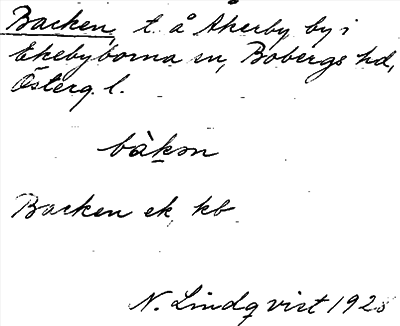 Backen, t. å Åkerby by i
Ekebyborna sn, Bobergs hd,
Österg. l.
bàkən
Backen ek. kb
N. Lindqvist 1928